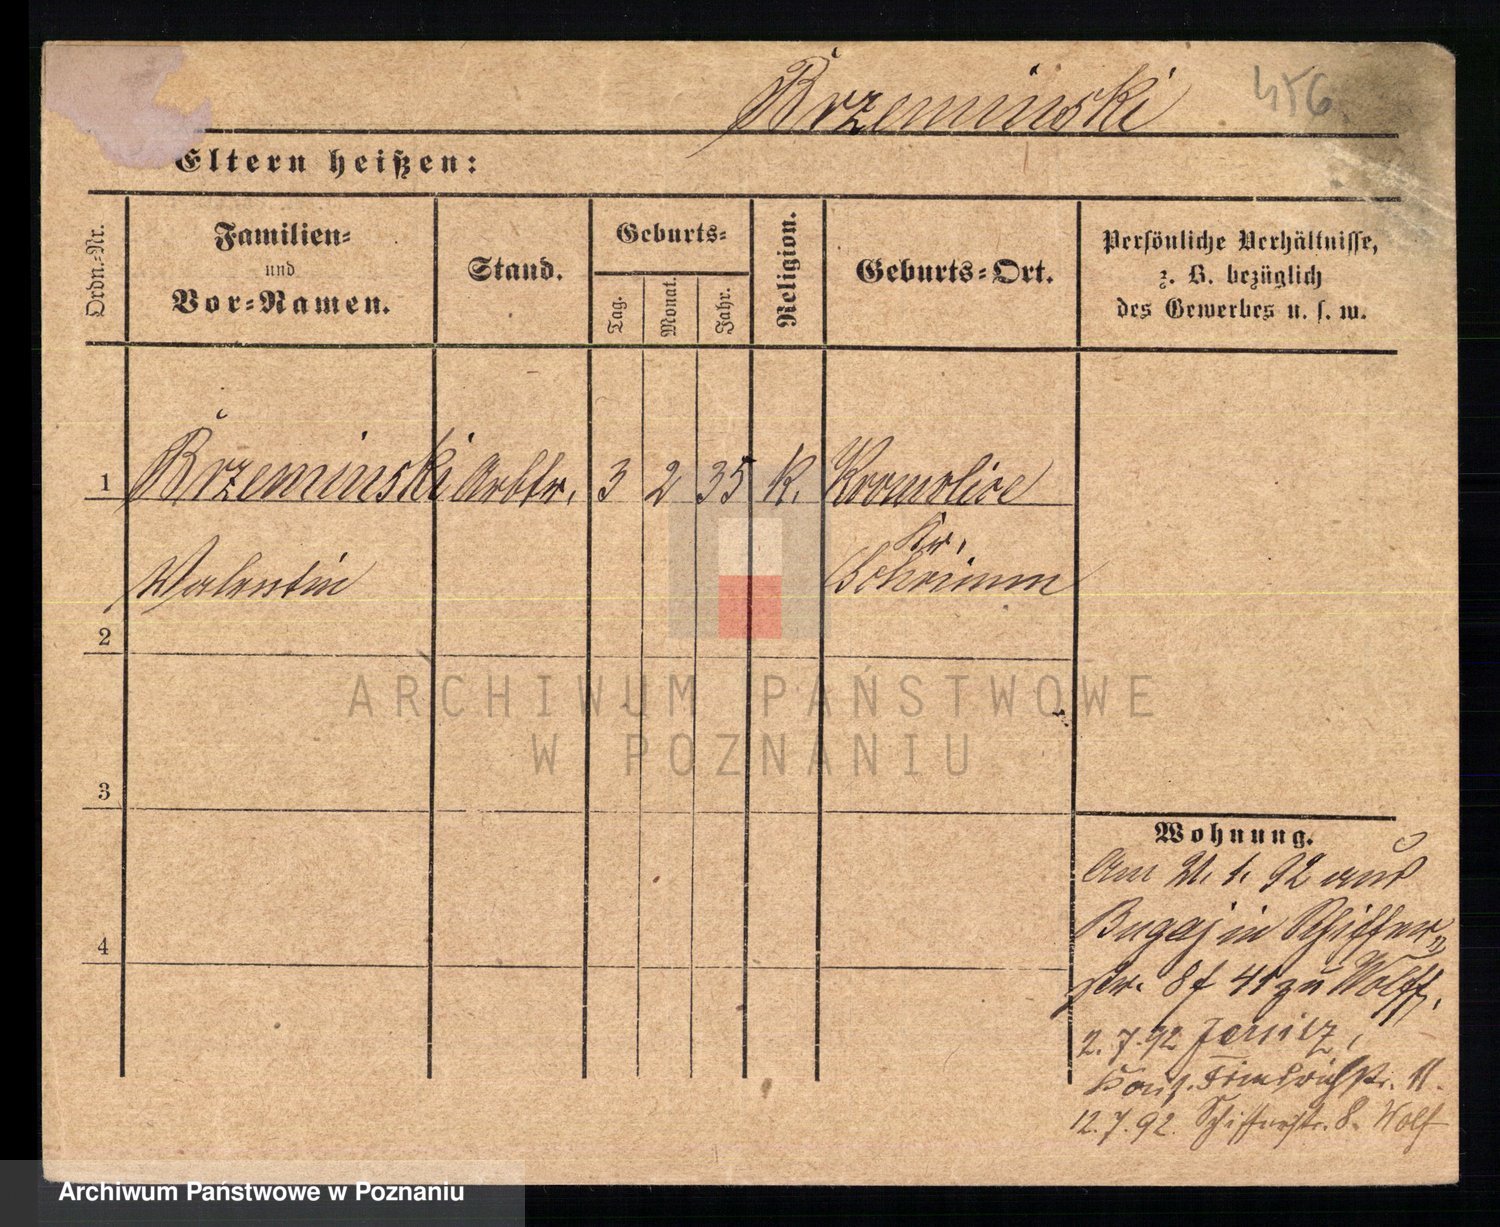 Brzeminski 456
Eltern heißen:
Ordn.-Nr.
Familien-
und
Vor-Namen.
Stand.
Geburts-
Tag.
Monat.
Jahr.
Religion.
Geburts-Ort.
Persönliche Verhältnisse,
z. B. bezüglich
des Gewerbes u. s. w.
1 Brzeminski Arbtr. 3 2 35 K. Kromolice
Kr.
Valentin Schrimm
2
ARCHIWUM PAŃSTWOWE
W POZNANIU
3
Wohnung.
Am 21. 1. 92 aus
Bugaj in Schiffer-
str. 8 f zu Wolff.
2. 7. 92
12. 7. 92. Schifferstr. 8. Wolf
4
Archiwum Państwowe w Poznaniu